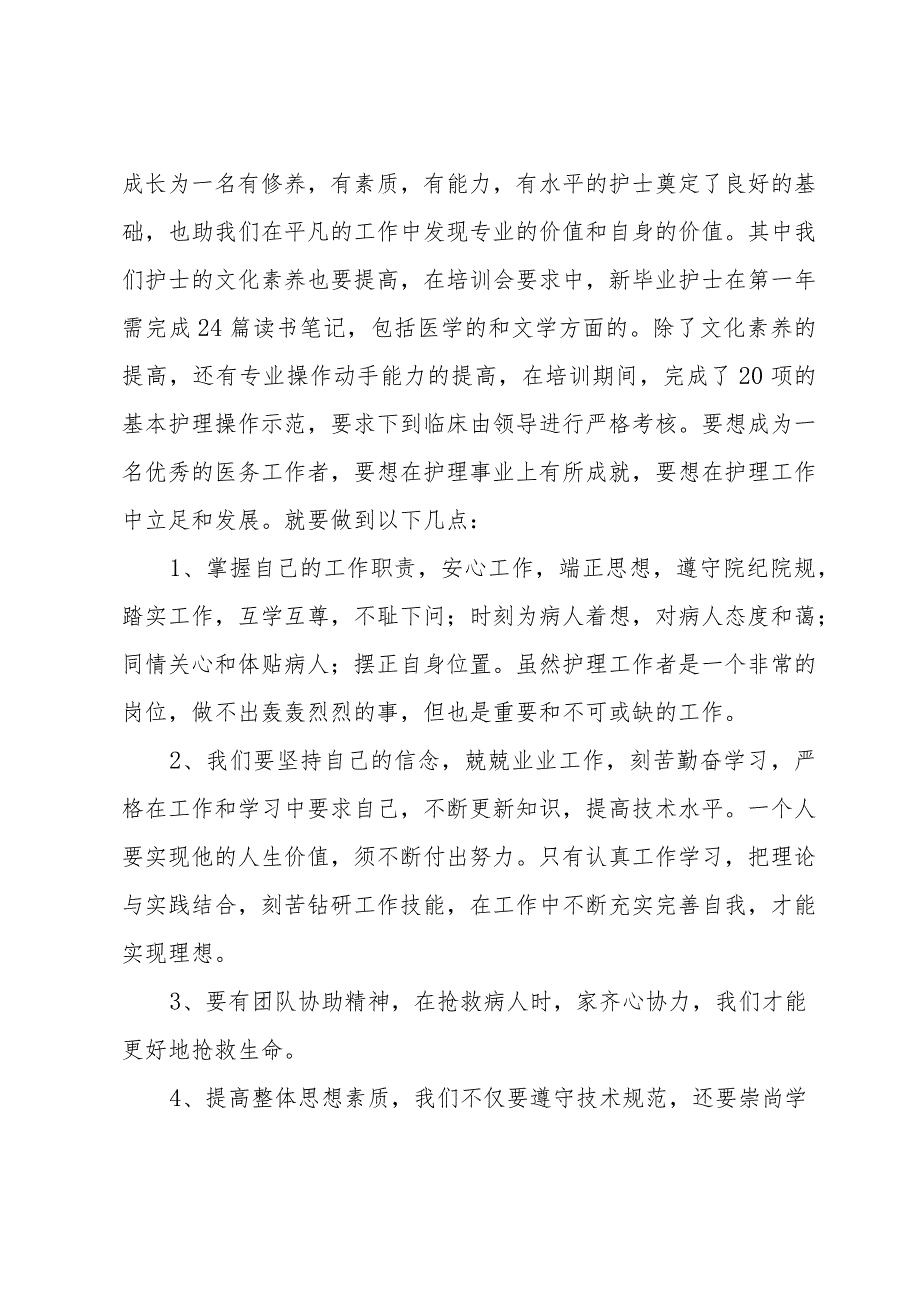 成长为一名有修养，有素质，有能力，有水平的护士奠定了良好的基
础，也助我们在平凡的工作中发现专业的价值和自身的价值。其中我
们护士的文化素养也要提高，在培训会要求中，新毕业护士在第一年
需完成24篇读书笔记，包括医学的和文学方面的。除了文化素养的
提高，还有专业操作动手能力的提高，在培训期间，完成了20项的
基本护理操作示范，要求下到临床由领导进行严格考核。要想成为一
名优秀的医务工作者，要想在护理事业上有所成就，要想在护理工作
中立足和发展。就要做到以下几点：
1、掌握自己的工作职责，安心工作，端正思想，遵守院纪院规，
踏实工作，互学互尊，不耻下问；时刻为病人着想，对病人态度和蔼；
同情关心和体贴病人；摆正自身位置。虽然护理工作者是一个非常的
岗位，做不出轰轰烈烈的事，但也是重要和不可或缺的工作。
2、我们要坚持自己的信念，兢兢业业工作，刻苦勤奋学习，严
格在工作和学习中要求自己，不断更新知识，提高技术水平。一个人
要实现他的人生价值，须不断付出努力。只有认真工作学习，把理论
与实践结合，刻苦钻研工作技能，在工作中不断充实完善自我，才能
实现理想。
3、要有团队协助精神，在抢救病人时，家齐心协力，我们才能
更好地抢救生命。
4、提高整体思想素质，我们不仅要遵守技术规范，还要崇尚学